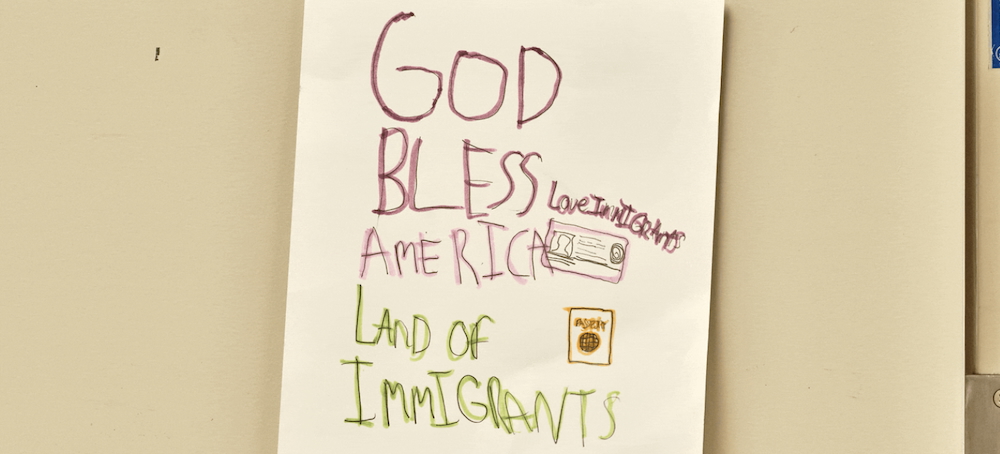 GOD
BLESS
Love IMMIGRANTS
AMERICA
LAND OF
IMMIGRANTS